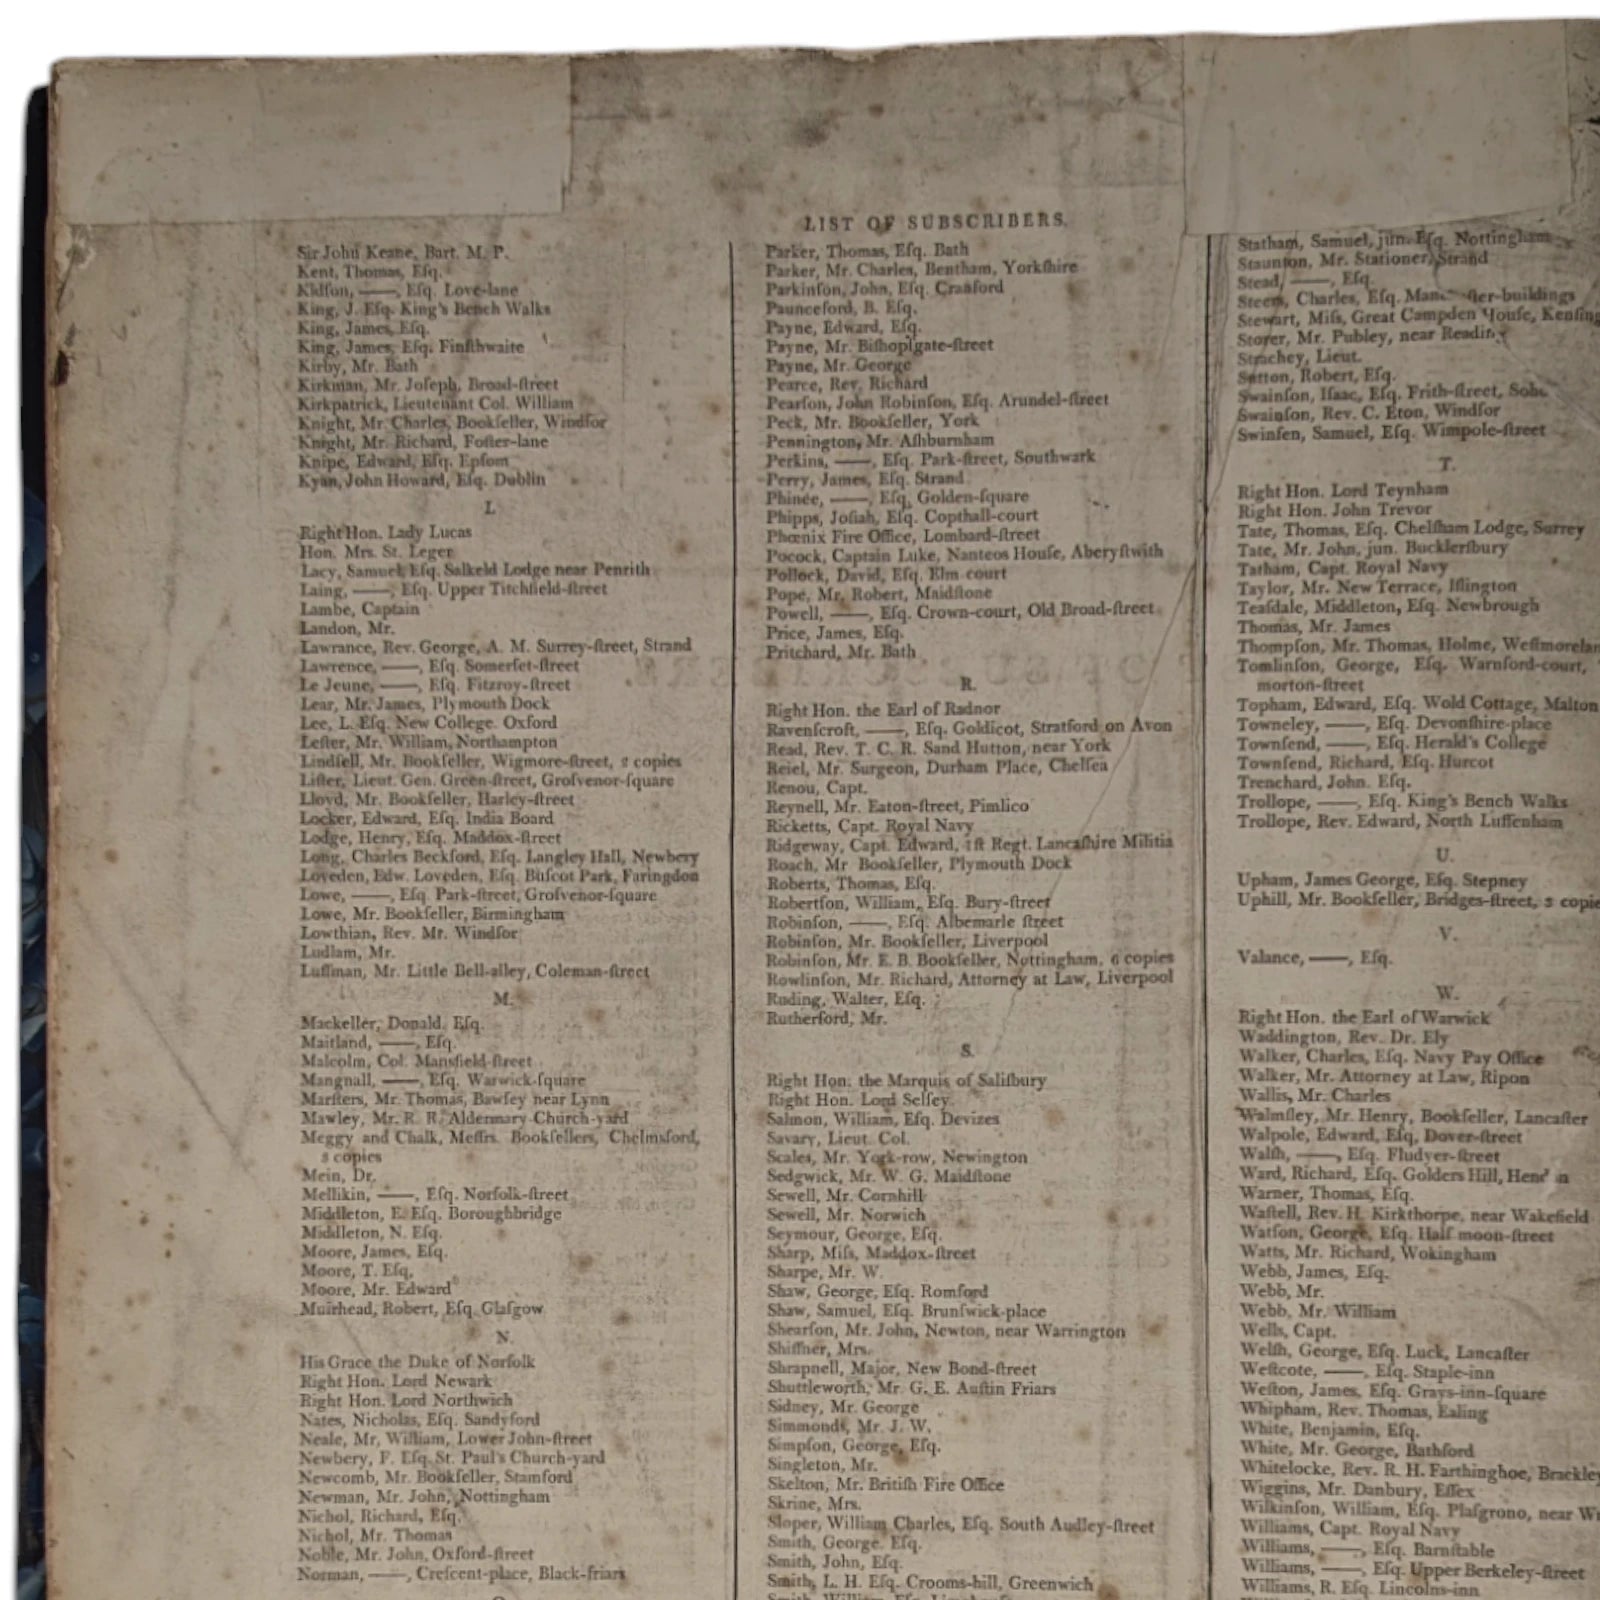 LIST OF SUBSCRIBERS.
Sir John Keane, Bart. M. P.
Kent, Thomas, Eſq.
Kidſon, ——, Eſq. Love-lane
King, J. Eſq. King's Bench Walks
King, James, Eſq.
King, James, Eſq. Finſthwaite
Kirby, Mr. Bath
Kirkman, Mr. Joſeph, Broad-ſtreet
Kirkpatrick, Lieutenant Col. William
Knight, Mr. Charles, Bookſeller, Windſor
Knight, Mr. Richard, Foſter-lane
Knipe, Edward, Eſq. Epſom
Kyan, John Howard, Eſq. Dublin
L
Right Hon. Lady Lucas
Hon. Mrs. St. Leger
Lacy, Samuel, Eſq. Salkeld Lodge near Penrith
Laing, ——, Eſq. Upper Titchfield-ſtreet
Lambe, Captain
Landon, Mr.
Lawrance, Rev. George, A. M. Surrey-ſtreet, Strand
Lawrence, ——, Eſq. Somerſet-ſtreet
Le Jeune, ——, Eſq. Fitzroy-ſtreet
Lear, Mr. James, Plymouth Dock
Lee, L. Eſq. New College, Oxford
Leſter, Mr. William, Northampton
Lindſell, Mr. Bookſeller, Wigmore-ſtreet, 2 copies
Liſter, Lieut. Gen. Green-ſtreet, Groſvenor-ſquare
Lloyd, Mr. Bookſeller, Harley-ſtreet
Locker, Edward, Eſq. India Board
Lodge, Henry, Eſq. Maddox-ſtreet
Long, Charles Beckford, Eſq. Langley Hall, Newbery
Loveden, Edw. Loveden, Eſq. Buſcot Park, Faringdon
Lowe, ——, Eſq. Park-ſtreet, Groſvenor-ſquare
Lowe, Mr. Bookſeller, Birmingham
Lowthian, Rev. Mr. Windſor
Ludlam, Mr.
Luffman, Mr. Little Bell-alley, Coleman-ſtreet
M.
Mackeller, Donald, Eſq.
Maitland, ——, Eſq.
Malcolm, Col. Mansfield-ſtreet
Mangnall, ——, Eſq. Warwick-ſquare
Marſters, Mr. Thomas, Bawſey near Lynn
Mawley, Mr. R. R. Aldermary Church-yard
Meggy and Chalk, Meſſrs. Bookſellers, Chelmsford,
3 copies
Mein, Dr.
Mellikin, ——, Eſq. Norfolk-ſtreet
Middleton, E. Eſq. Boroughbridge
Middleton, N. Eſq.
Moore, James, Eſq.
Moore, T. Eſq.
Moore, Mr. Edward
Muirhead, Robert, Eſq. Glaſgow
N.
His Grace the Duke of Norfolk
Right Hon. Lord Newark
Right Hon. Lord Northwich
Nates, Nicholas, Eſq. Sandyford
Neale, Mr. William, Lower John-ſtreet
Newbery, F. Eſq. St. Paul's Church-yard
Newcomb, Mr. Bookſeller, Stamford
Newman, Mr. John, Nottingham
Nichol, Richard, Eſq.
Nichol, Mr. Thomas
Noble, Mr. John, Oxford-ſtreet
Norman, ——, Creſcent-place, Black-friars
Parker, Thomas, Eſq. Bath
Parker, Mr. Charles, Bentham, Yorkſhire
Parkinſon, John, Eſq. Cranford
Paunceford, B. Eſq.
Payne, Edward, Eſq.
Payne, Mr. Biſhopſgate-ſtreet
Payne, Mr. George
Pearce, Rev. Richard
Pearſon, John Robinſon, Eſq. Arundel-ſtreet
Peck, Mr. Bookſeller, York
Pennington, Mr. Aſhburnham
Perkins, ——, Eſq. Park-ſtreet, Southwark
Perry, James, Eſq. Strand
Phinée, ——, Eſq. Golden-ſquare
Phipps, Joſiah, Eſq. Copthall-court
Phœnix Fire Office, Lombard-ſtreet
Pocock, Captain Luke, Nanteos Houſe, Aberyſtwith
Pollock, David, Eſq. Elm court
Pope, Mr. Robert, Maidſtone
Powell, ——, Eſq. Crown-court, Old Broad-ſtreet
Price, James, Eſq.
Pritchard, Mr. Bath
R.
Right Hon. the Earl of Radnor
Ravenſcroft, ——, Eſq. Goldicot, Stratford on Avon
Read, Rev. T. C. R. Sand Hutton, near York
Reiel, Mr. Surgeon, Durham Place, Chelſea
Renou, Capt.
Reynell, Mr. Eaton-ſtreet, Pimlico
Ricketts, Capt. Royal Navy
Ridgeway, Capt. Edward, 1ſt Regt. Lancaſhire Militia
Roach, Mr Bookſeller, Plymouth Dock
Roberts, Thomas, Eſq.
Robertſon, William, Eſq. Bury-ſtreet
Robinſon, ——, Eſq. Albemarle ſtreet
Robinſon, Mr. Bookſeller, Liverpool
Robinſon, Mr. E. B. Bookſeller, Nottingham, 6 copies
Rowlinſon, Mr. Richard, Attorney at Law, Liverpool
Ruding, Walter, Eſq.
Rutherford, Mr.
S.
Right Hon. the Marquis of Saliſbury
Right Hon. Lord Selſey
Salmon, William, Eſq. Devizes
Savary, Lieut. Col.
Scales, Mr. York-row, Newington
Sedgwick, Mr. W. G. Maidſtone
Sewell, Mr. Cornhill
Sewell, Mr. Norwich
Seymour, George, Eſq.
Sharp, Miſs, Maddox-ſtreet
Sharpe, Mr. W.
Shaw, George, Eſq. Romford
Shaw, Samuel, Eſq. Brunſwick-place
Shearſon, Mr. John, Newton, near Warrington
Shiffner, Mrs.
Shrapnell, Major, New Bond-ſtreet
Shuttleworth, Mr. G. E. Auſtin Friars
Sidney, Mr. George
Simmonds, Mr. J. W.
Simpſon, George, Eſq.
Singleton, Mr.
Skelton, Mr. Britiſh Fire Office
Skrine, Mrs.
Sloper, William Charles, Eſq. South Audley-ſtreet
Smith, George, Eſq.
Smith, John, Eſq.
Smith, L. H. Eſq. Crooms-hill, Greenwich
Statham, Samuel, jun. Eſq. Nottingham
Staunton, Mr. Stationer, Strand
Stead, ——, Eſq.
Steers, Charles, Eſq.
Stewart, Miſs, Great Campden Houſe, Kenſing
Storer, Mr. Publey, near Readin
Strachey, Lieut.
Sutton, Robert, Eſq.
Swainſon, Iſaac, Eſq. Frith-ſtreet, Soho
Swainſon, Rev. C. Eton, Windſor
Swinſen, Samuel, Eſq. Wimpole-ſtreet
T.
Right Hon. Lord Teynham
Right Hon. John Trevor
Tate, Thomas, Eſq. Chelſham Lodge, Surrey
Tate, Mr. John, jun. Bucklerſbury
Tatham, Capt. Royal Navy
Taylor, Mr. New Terrace, Iſlington
Teaſdale, Middleton, Eſq. Newbrough
Thomas, Mr. James
Thompſon, Mr. Thomas, Holme, Weſtmorelan
Tomlinſon, George, Eſq. Warnford-court,
morton-ſtreet
Topham, Edward, Eſq. Wold Cottage, Malton
Towneley, ——, Eſq. Devonſhire-place
Townſend, ——, Eſq. Herald's College
Townſend, Richard, Eſq. Hurcot
Trenchard, John, Eſq.
Trollope, ——, Eſq. King's Bench Walks
Trollope, Rev. Edward, North Luffenham
U.
Upham, James George, Eſq. Stepney
Uphill, Mr. Bookſeller, Bridges-ſtreet, 2 copie
V.
Valance, ——, Eſq.
W.
Right Hon. the Earl of Warwick
Waddington, Rev. Dr. Ely
Walker, Charles, Eſq. Navy Pay Office
Walker, Mr. Attorney at Law, Ripon
Wallis, Mr. Charles
Walmſley, Mr. Henry, Bookſeller, Lancaſter
Walpole, Edward, Eſq. Dover-ſtreet
Walſh, ——, Eſq. Fludyer-ſtreet
Ward, Richard, Eſq. Golders Hill, Hendon
Warner, Thomas, Eſq.
Waſtell, Rev. H. Kirkthorpe, near Wakefield
Watſon, George, Eſq. Half moon-ſtreet
Watts, Mr. Richard, Wokingham
Webb, James, Eſq.
Webb, Mr.
Webb, Mr. William
Wells, Capt.
Welſh, George, Eſq. Luck, Lancaſter
Weſtcote, ——, Eſq. Staple-inn
Weſton, James, Eſq. Grays-inn-ſquare
Whipham, Rev. Thomas, Ealing
White, Benjamin, Eſq.
White, Mr. George, Bathford
Whitelocke, Rev. R. H. Farthinghoe, Brackley
Wiggins, Mr. Danbury, Eſſex
Wilkinſon, William, Eſq. Plaſgrono, near Wr
Williams, Capt. Royal Navy
Williams, ——, Eſq. Barnſtable
Williams, ——, Eſq. Upper Berkeley-ſtreet
Williams, R. Eſq. Lincolns-inn